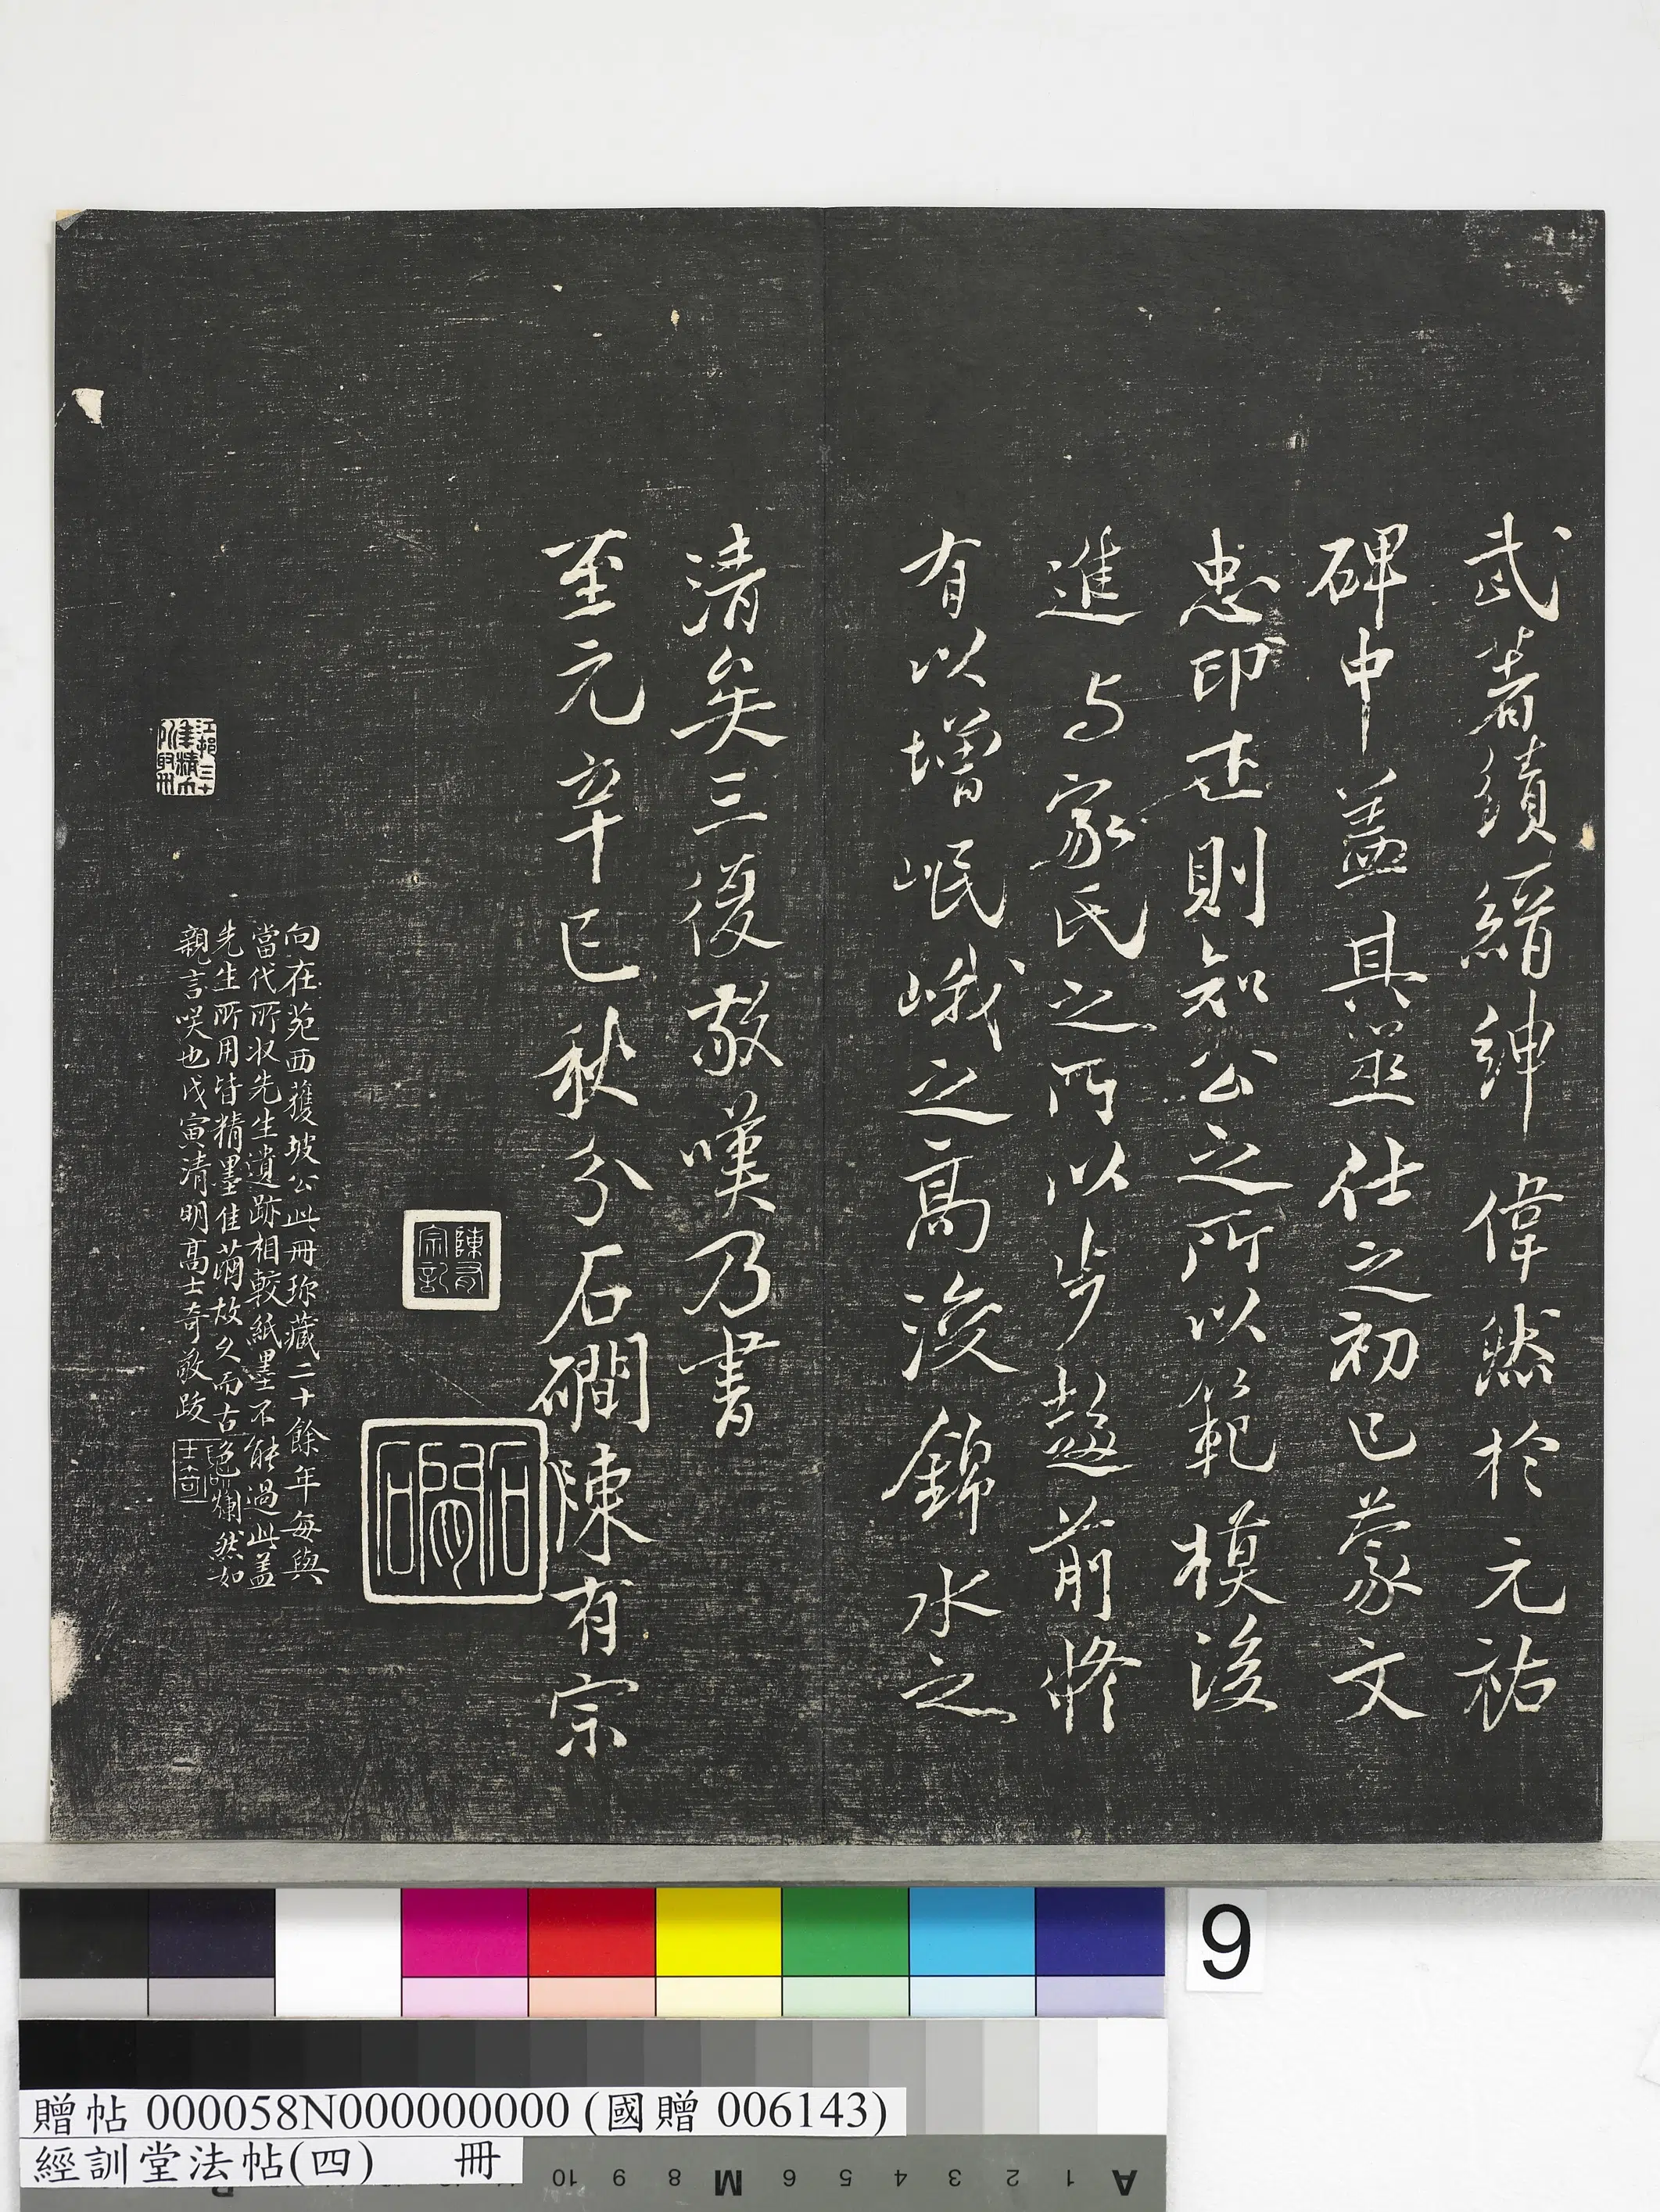 武著績縉紳偉然於元祐
碑中蓋其筮仕之初已蒙文
忠印述則知公之所以範模後
進与家氏之所以步趨前修
有以增岷峨之高浚錦水之
清矣三復敬嘆乃書
至元辛巳秋分石磵陳有宗
陳有宗記
石磵
向在苑西獲坡公此冊珍藏二十餘年每與
當代所收先生遺跡相較紙墨不能過此蓋
先生所用皆精墨佳繭故久而古色爛然如
親言咲也戊寅清明高士奇敬跋
士奇
9
贈帖 000058N000000000 (國贈 006143)
經訓堂法帖(四) 冊
A 1 2 3 4 5 6 M 8 9 10